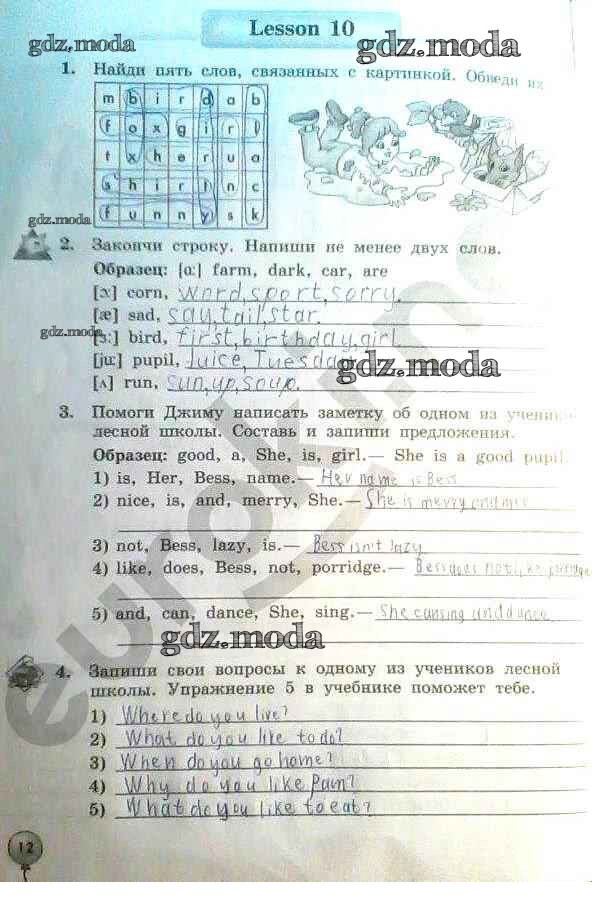 Lesson 10
gdz.moda
gdz.moda
1. Найди пять слов, связанных с картинкой. Обведи их
m b i r d a b
f o x g i r l
t x h e r u a
s h i r t n c
f u n n y s k
gdz.moda
2. Закончи строку. Напиши не менее двух слов.
Образец: [ɑː] farm, dark, car, are
[ɔ] corn, word, sport, sorry.
[æ] sad, say, tail, star.
gdz.moda
[ɜː] bird, first, birthday, girl
[juː] pupil, juice, Tuesday
gdz.moda
[ʌ] run, sun, up, soup.
3. Помоги Джиму написать заметку об одном из учеников
лесной школы. Составь и запиши предложения.
Образец: good, a, She, is, girl.— She is a good pupil
1) is, Her, Bess, name.— Her name is Bess
2) nice, is, and, merry, She.— She is merry and nice
3) not, Bess, lazy, is.— Bess isn't lazy
4) like, does, Bess, not, porridge.— Bess does not like porridge
5) and, can, dance, She, sing.— She can sing and dance
gdz.moda
4. Запиши свои вопросы к одному из учеников лесной
школы. Упражнение 5 в учебнике поможет тебе.
1) Where do you live?
2) What do you like to do?
3) When do you go home?
4) Why do you like Pam?
5) What do you like to eat?
12
eurokni